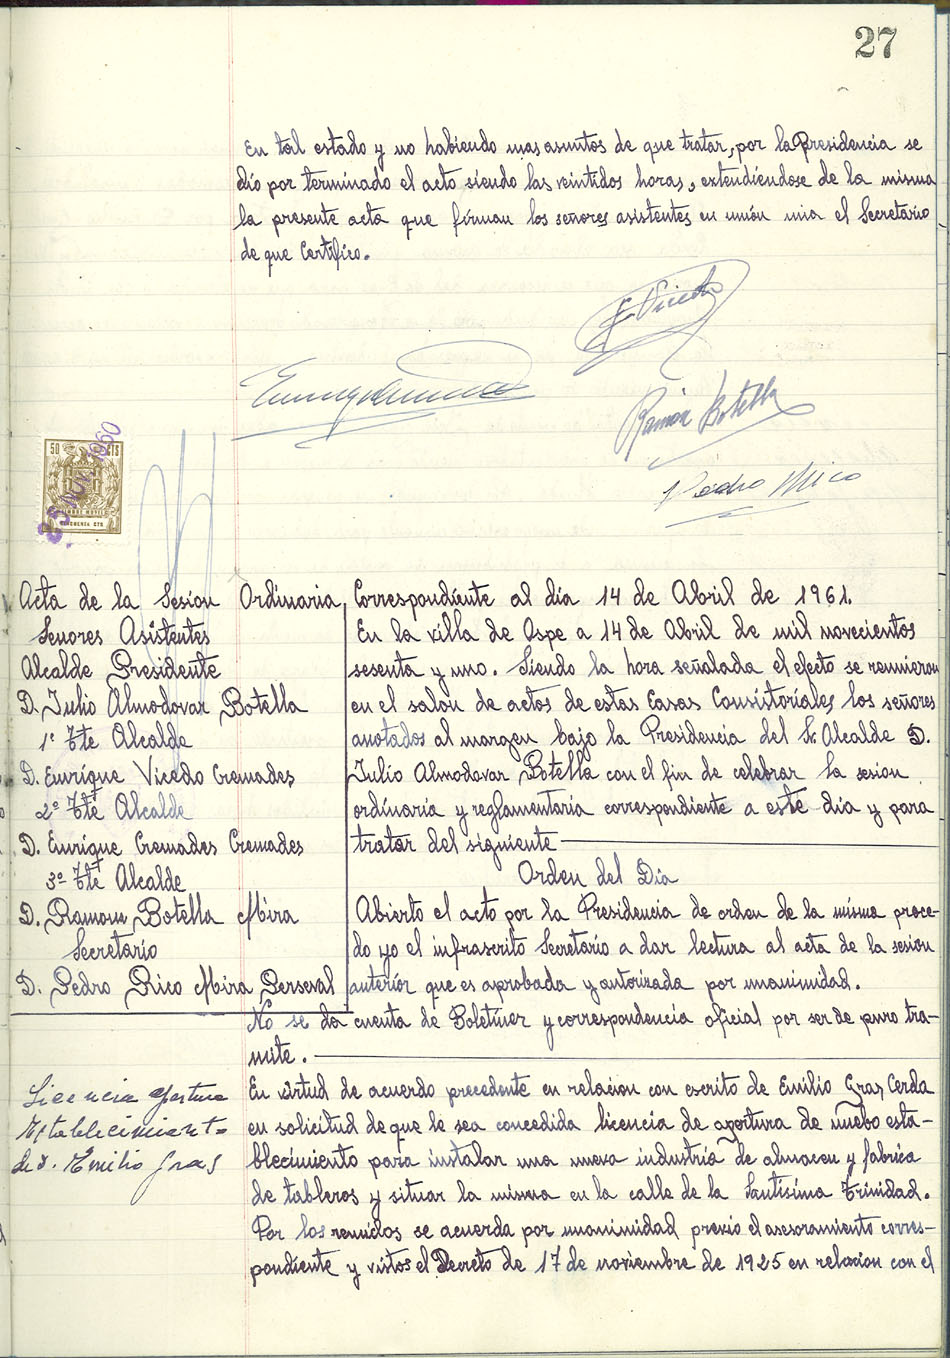 27
En tal estado y no habiendo mas asuntos de que tratar, por la Presidencia se
dio por terminado el acto siendo las veintidos horas, extendiéndose de la misma
la presente acta que firman los señores asistentes en unión mia el Secretario
de que Certifico.
E Vicedo
Ramón Botella
Pedro Rico
50 CTS
25 NOV. 1960
TIMBRE MOVIL
CINCUENTA CTS
Acta de la Sesion Ordinaria, Correspondiente al dia 14 de Abril de 1961.
Señores Asistentes
Alcalde Presidente
D. Julio Almodovar Botella
1º Tte Alcalde
D. Enrique Vicedo Cremades
2º Tte Alcalde
D. Enrique Cremades Cremades
3º Tte Alcalde
D. Ramon Botella Mira
Secretario
D. Pedro Rico Mira Perseval
En la villa de Aspe a 14 de Abril de mil novecientos
sesenta y uno. Siendo la hora señalada el efecto se reunieron
en el salon de actos de estas Casas Consistoriales los señores
anotados al margen bajo la Presidencia del Sr. Alcalde D.
Julio Almodovar Botella con el fin de celebrar la sesion
ordinaria y reglamentaria correspondiente a este dia y para
tratar del siguiente
Orden del Dia
Abierto el acto por la Presidencia de orden de la misma proce-
do yo el infrascrito Secretario a dar lectura al acta de la sesion
anterior que es aprobada y autorizada por unanimidad.
No se da cuenta de Boletines y correspondencia oficial por ser de puro tra-
mite.
Licencia apertura
Establecimiento
de D. Emilio Gras
En virtud de acuerdo precedente en relacion con escrito de Emilio Gras Cerda
en solicitud de que le sea concedida licencia de apertura de nuebo esta-
blecimiento para instalar una nueva industria de almacen y fabrica
de tableros y situar la misma en la calle de la Santisima Trinidad.
Por los reunidos se acuerda por unanimidad previo el asesoramiento corres-
pondiente y vistos el Decreto de 17 de noviembre de 1925 en relacion con el